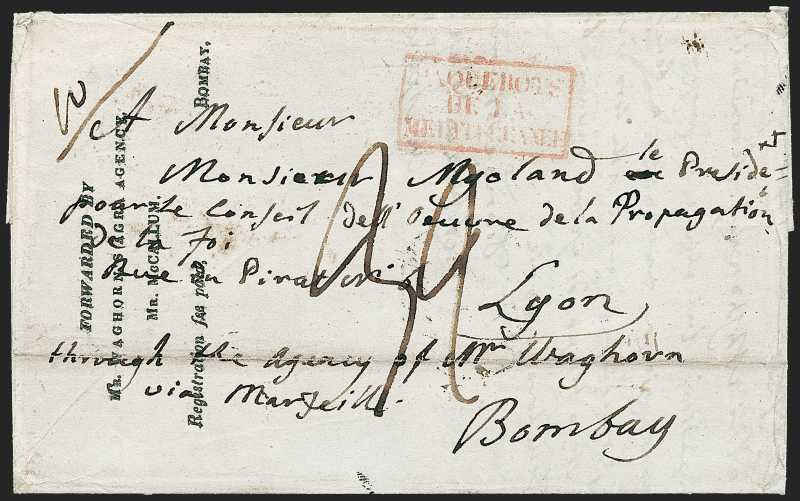 PAQUEBOTS
DE LA
MEDITERRANEE
A Monsieur
Monsieur Myoland le Preside-
pour le Conseil dell' Oeuvre de la Propagation
de la Foi
Rue
Lyon
through the agency of Mr Waghorn
via Marseille
Bombay
FORWARDED BY
MR. WAGHORN'S AGRA AGENCE,
MR. McCALLUM,
Registration fee paid, BOMBAY.